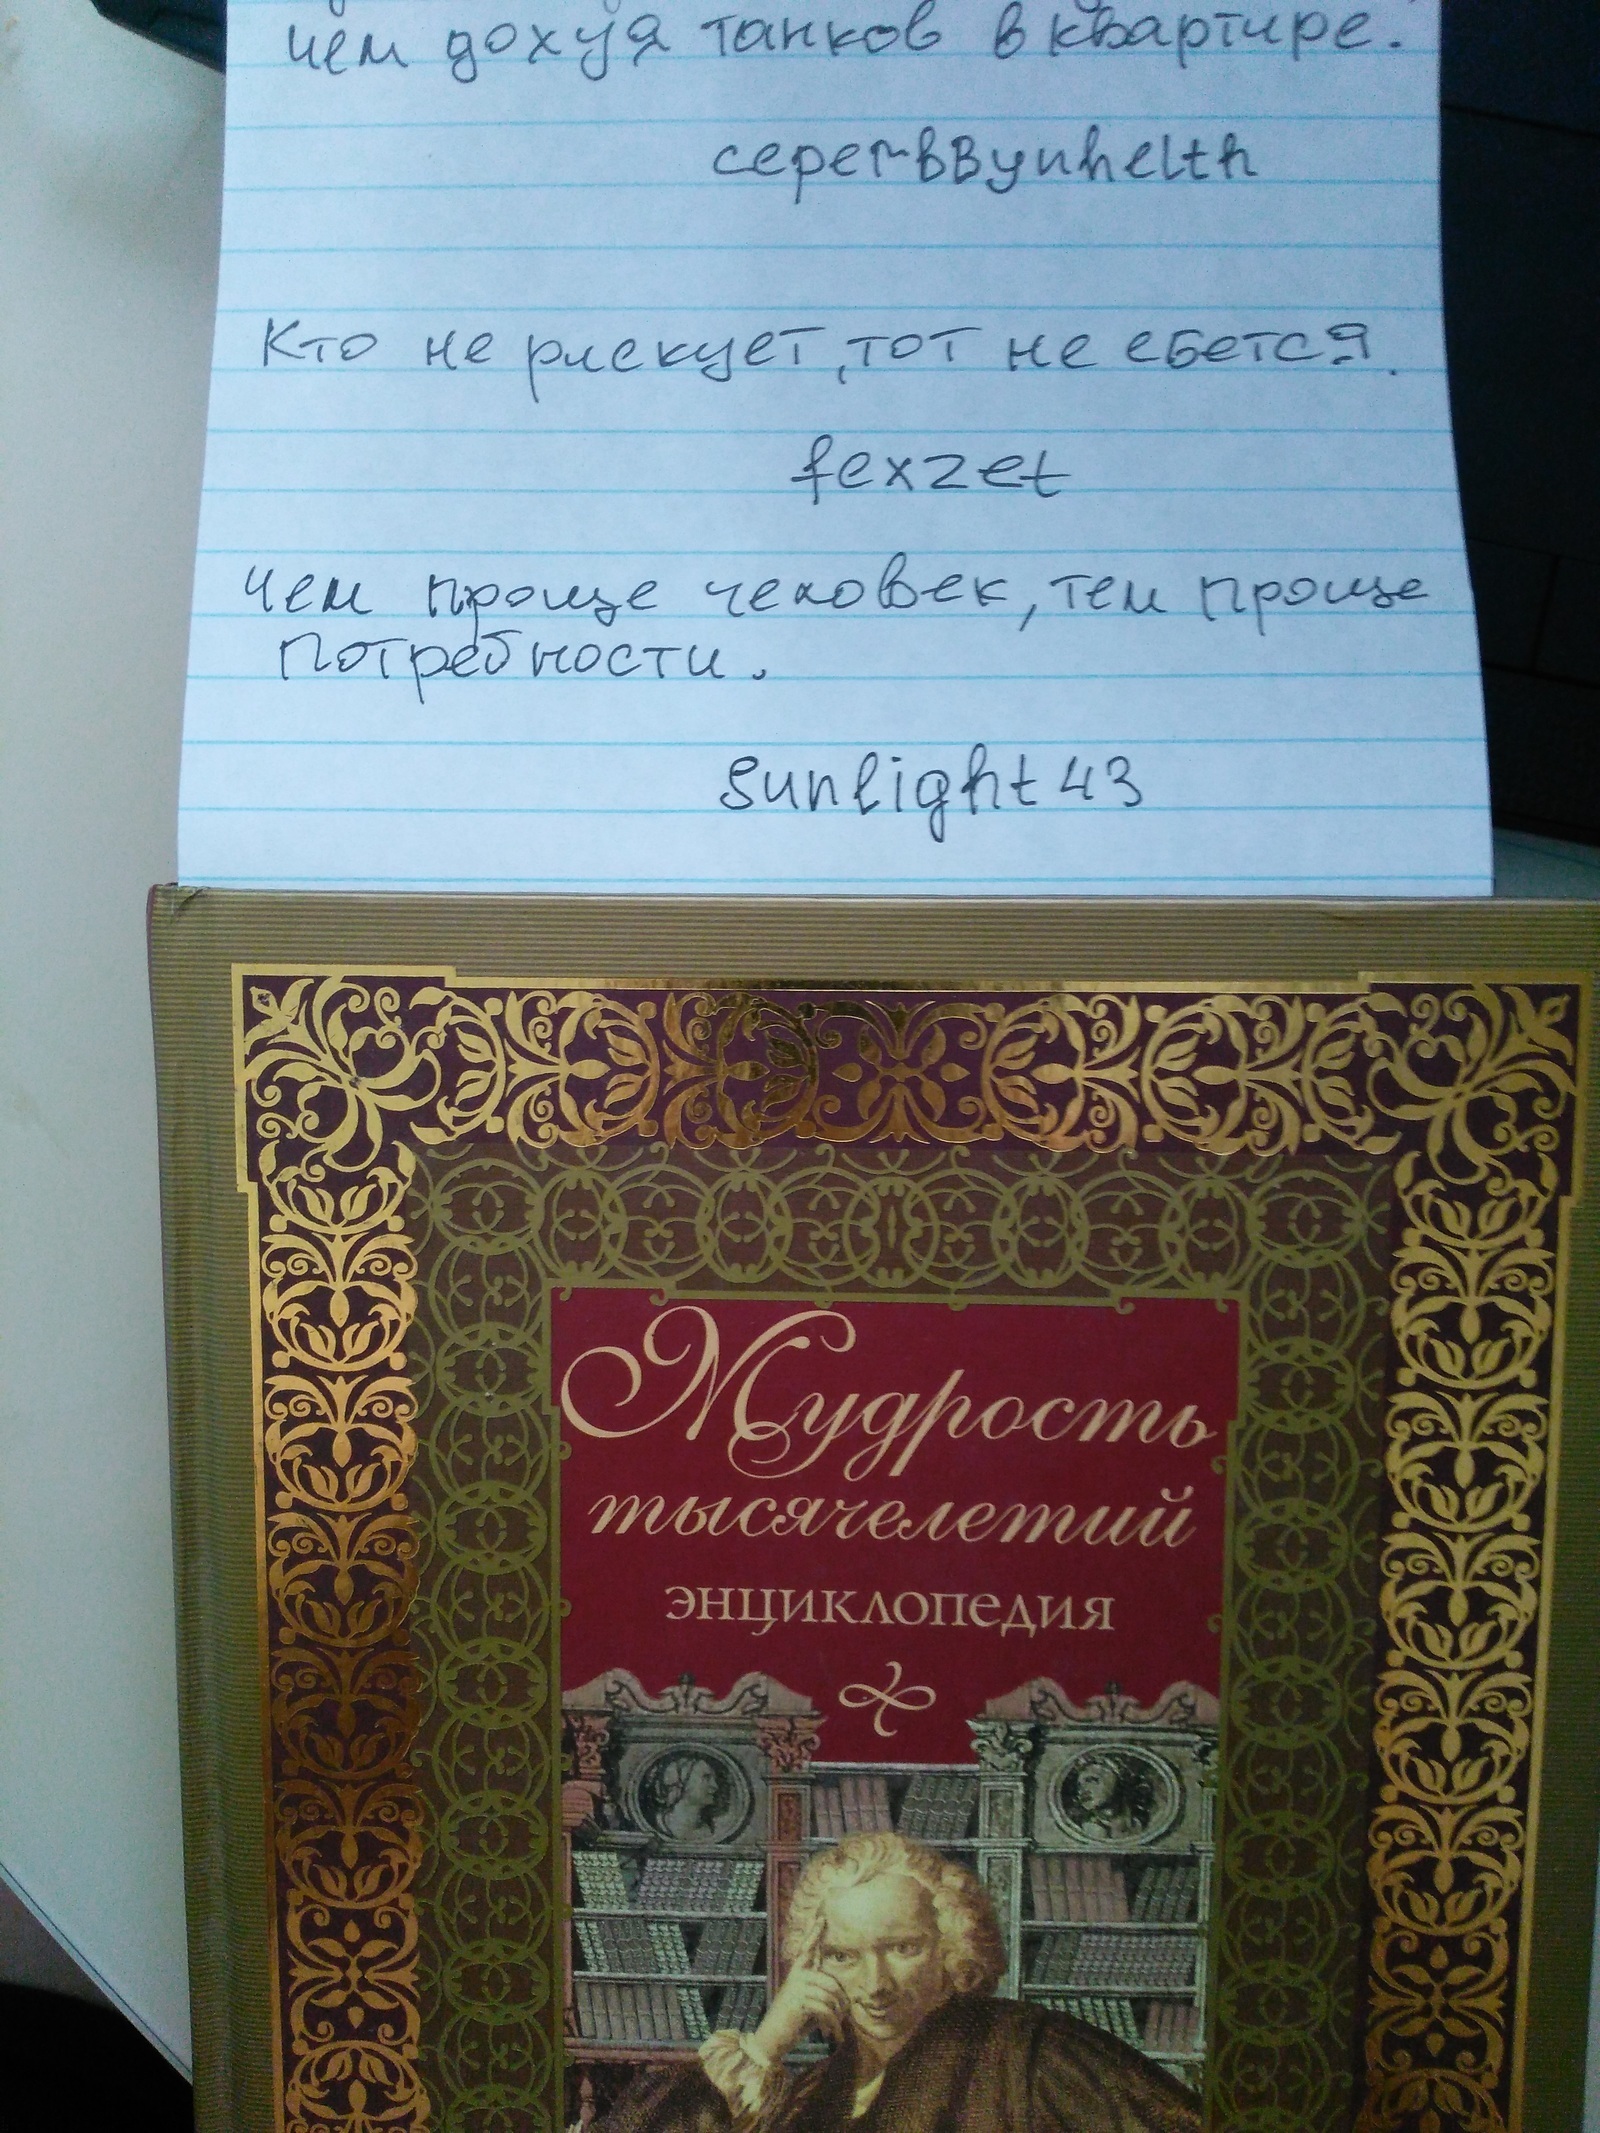 чем дохуя танков в квартире.
Кто не рискует, тот не ебется.
fexzet
Чем проще человек, тем проще
потребности.
sunlight43
Мудрость
тысячелетий
ЭНЦИКЛОПЕДИЯ